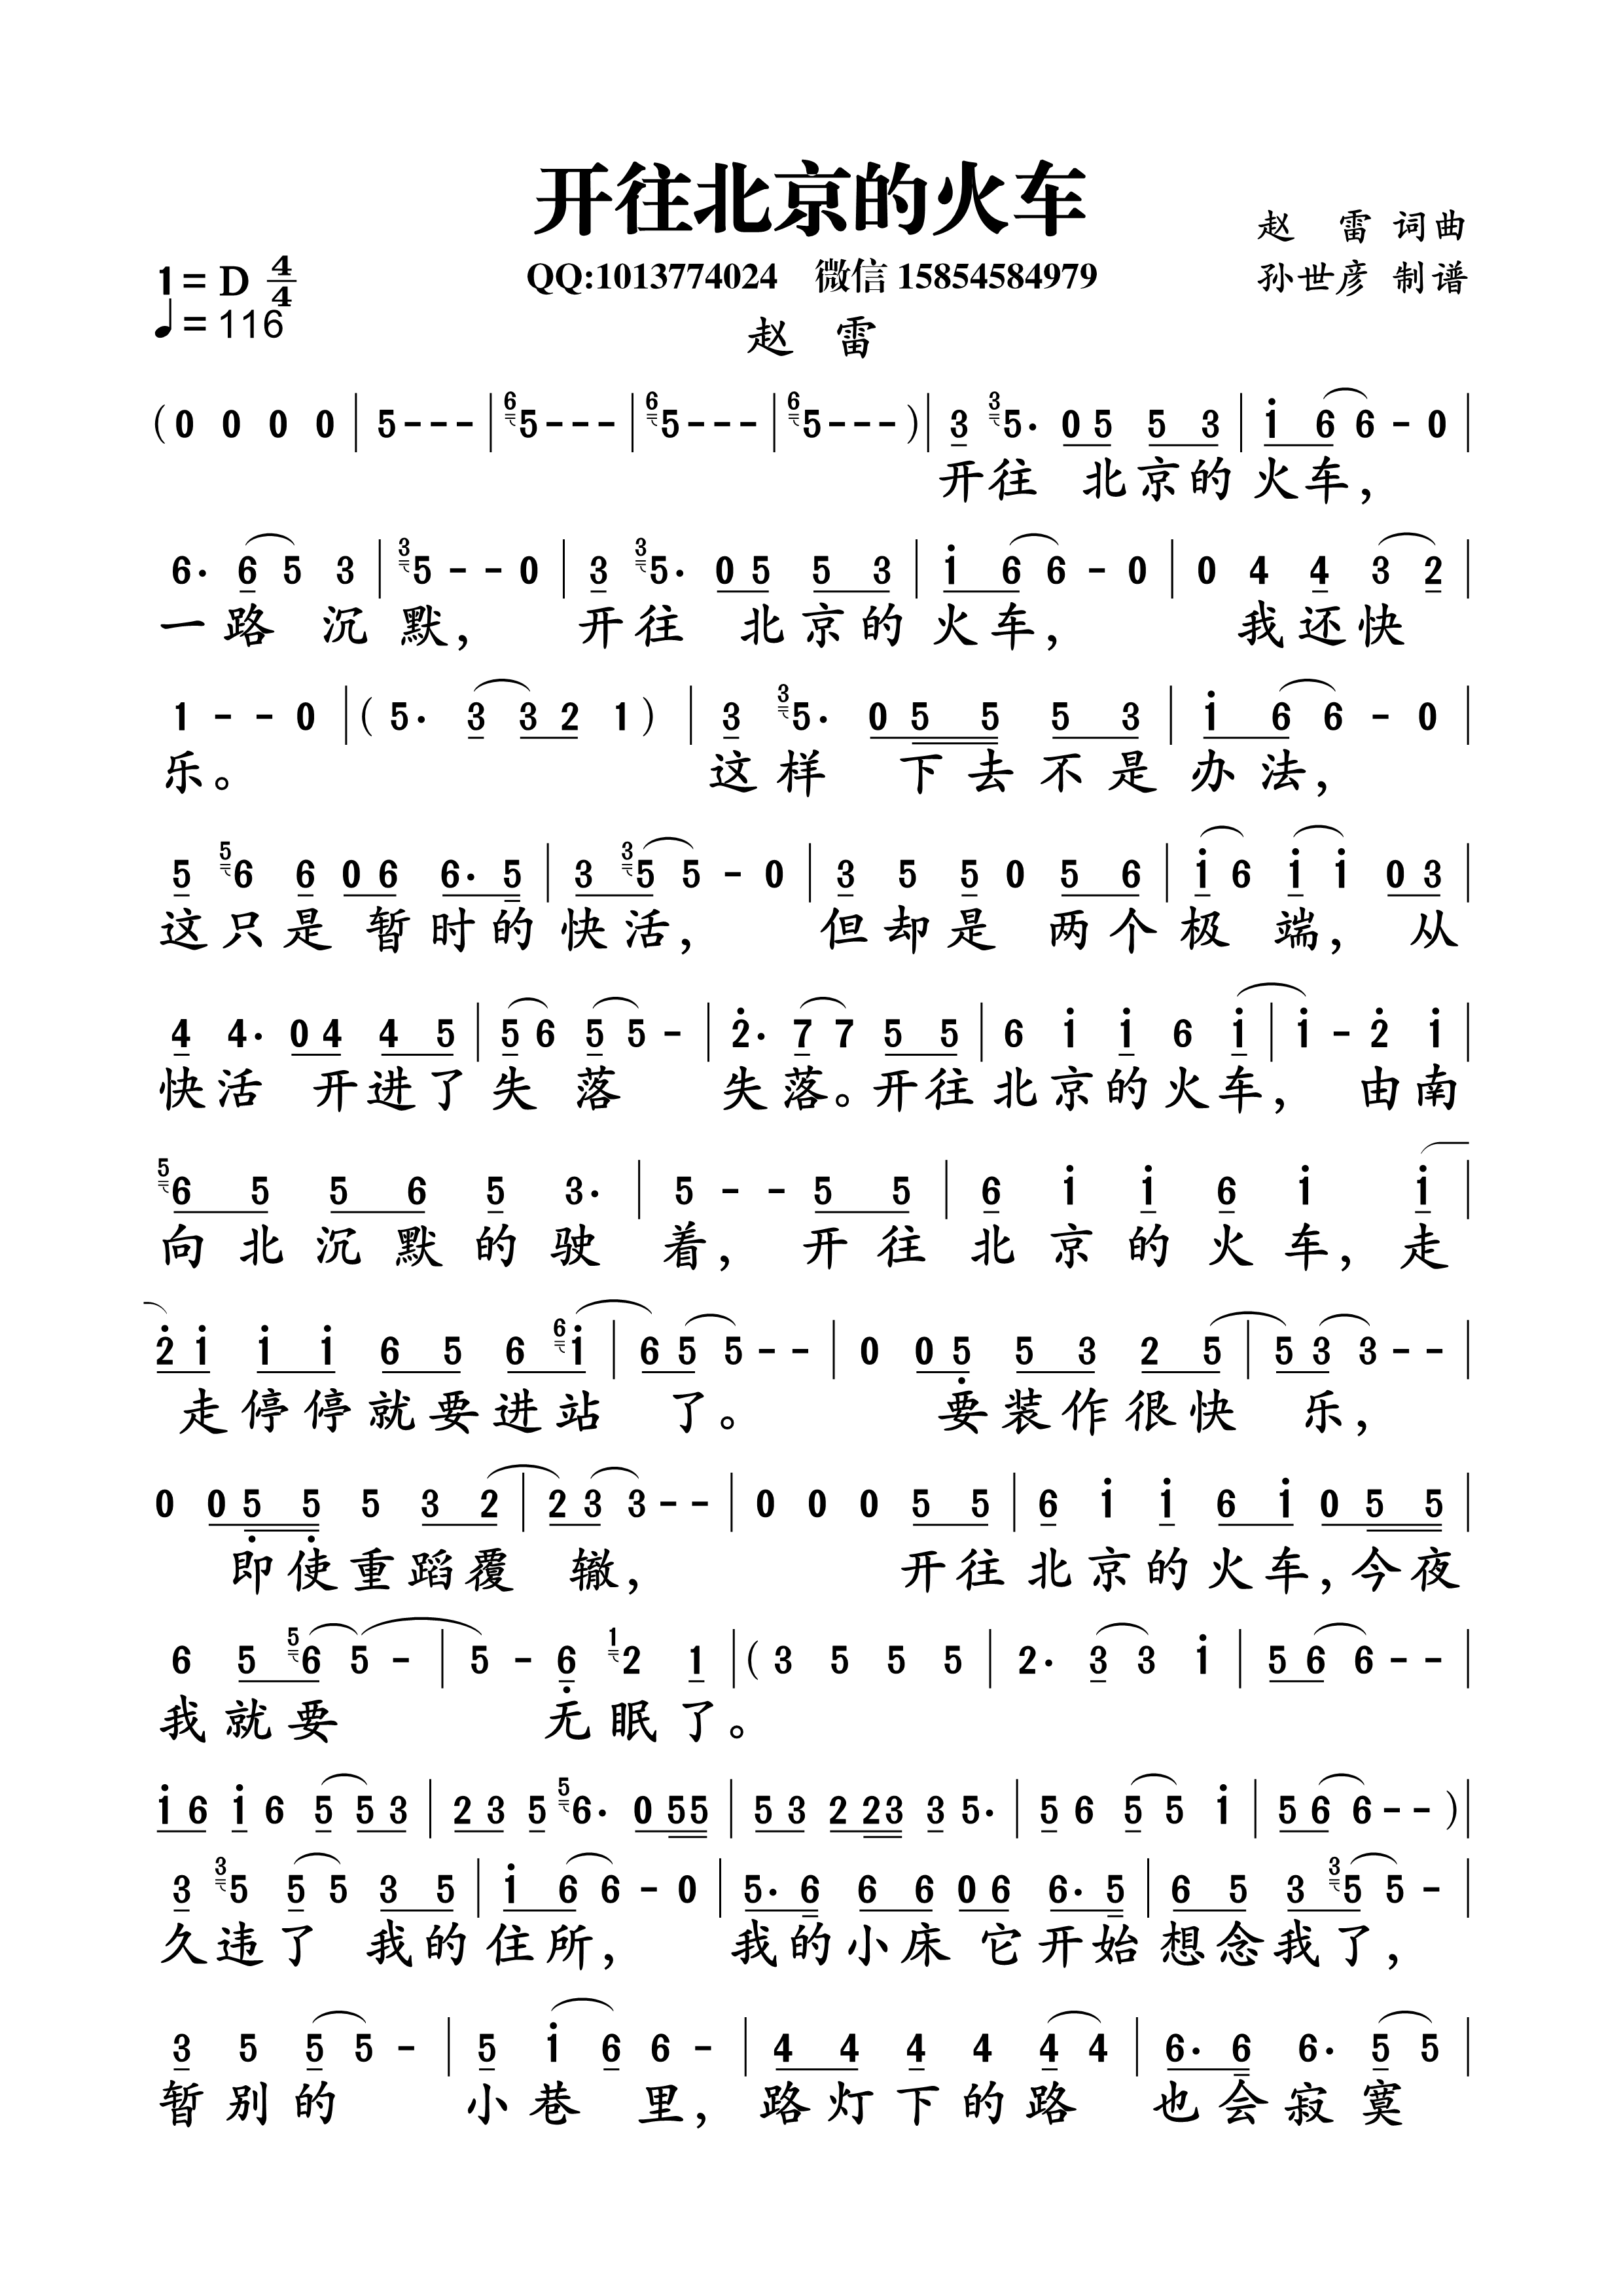 开往北京的火车
赵 雷 词曲
1= D 4/4
QQ:1013774024 微信 15854584979
孙世彦 制谱
♩= 116
赵 雷
(0 0 0 0 | 5 - - - | 6 5 - - - | 6 5 - - - | 6 5 - - - )| 3 3 5. 0 5 5 3 | i 6 6 - 0 |
开往 北京的火车,
6. 6 5 3 | 3 5 - - 0 | 3 3 5. 0 5 5 3 | i 6 6 - 0 | 0 4 4 3 2 |
一路 沉 默, 开往 北京的火车, 我还快
1 - - 0 |( 5. 3 3 2 1 ) | 3 3 5. 0 5 5 5 3 | i 6 6 - 0 |
乐。 这样 下去不是办法,
5 5 6 6 0 6 6. 5 | 3 3 5 5 - 0 | 3 5 5 0 5 6 | i 6 i i 0 3 |
这只是暂时的快活, 但却是 两个极 端, 从
4 4. 0 4 4 5 | 5 6 5 5 - | 2. 7 7 5 5 | 6 i i 6 i | i - 2 i |
快活 开进了失 落 失落。开往北京的火车, 由南
5 6 5 5 6 5 3. | 5 - - 5 5 | 6 i i 6 i i |
向北沉默的驶 着, 开往北京的火车,走
2 i i i 6 5 6 6 i | 6 5 5 - - | 0 0 5 5 3 2 5 | 5 3 3 - - |
走停停就要进站 了。 要装作很快 乐,
0 0 5 5 5 3 2 | 2 3 3 - - | 0 0 0 5 5 | 6 i i 6 i 0 5 5 |
即使重蹈覆 辙, 开往北京的火车,今夜
6 5 5 6 5 - | 5 - 6 1 2 1 |( 3 5 5 5 | 2. 3 3 i | 5 6 6 - - |
我就要 无眠了。
i 6 i 6 5 5 3 | 2 3 5 5 6. 0 5 5 | 5 3 2 2 3 3 5. | 5 6 5 5 i | 5 6 6 - - )|
3 3 5 5 5 3 5 | i 6 6 - 0 | 5. 6 6 6 0 6 6. 5 | 6 5 3 3 5 5 - |
久违了 我的住所, 我的小床 它开始想念我了,
3 5 5 5 - | 5 i 6 6 - | 4 4 4 4 4 4 | 6. 6 6. 5 5 |
暂别的 小巷 里,路灯下的路 也会寂寞